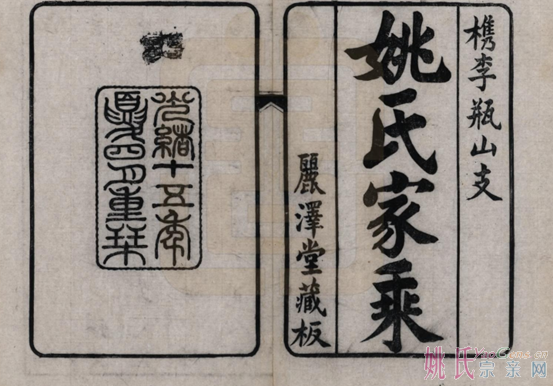 槜李瓶山支
姚氏家乘
麗澤堂藏板
光緒十五年
夏四月重栞
姚氏宗亲网